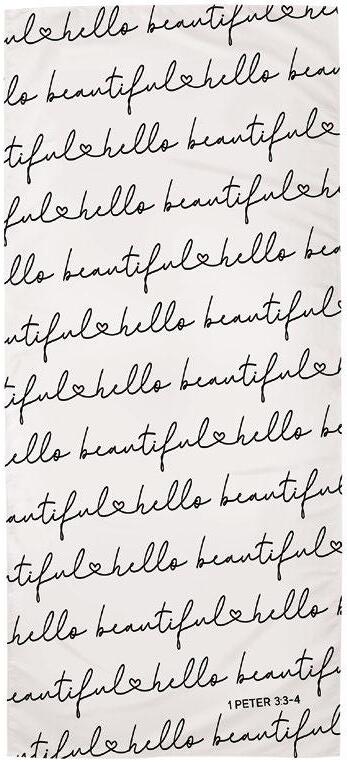 ul♡hello beautiful♡he
lo beautiful♡hello beau
tiful♡hello beautiful♡
ful♡hello beautiful♡h
llo beautiful♡hello bea
utiful♡hello beautiful
tiful♡hello beautiful♡
ello beautiful♡hello be
autiful♡hello beautiful
tiful♡hello beautiful♡
hello beautiful♡hello b
eautiful♡hello beautiful
1 PETER 3:3-4
utiful♡hello beautiful